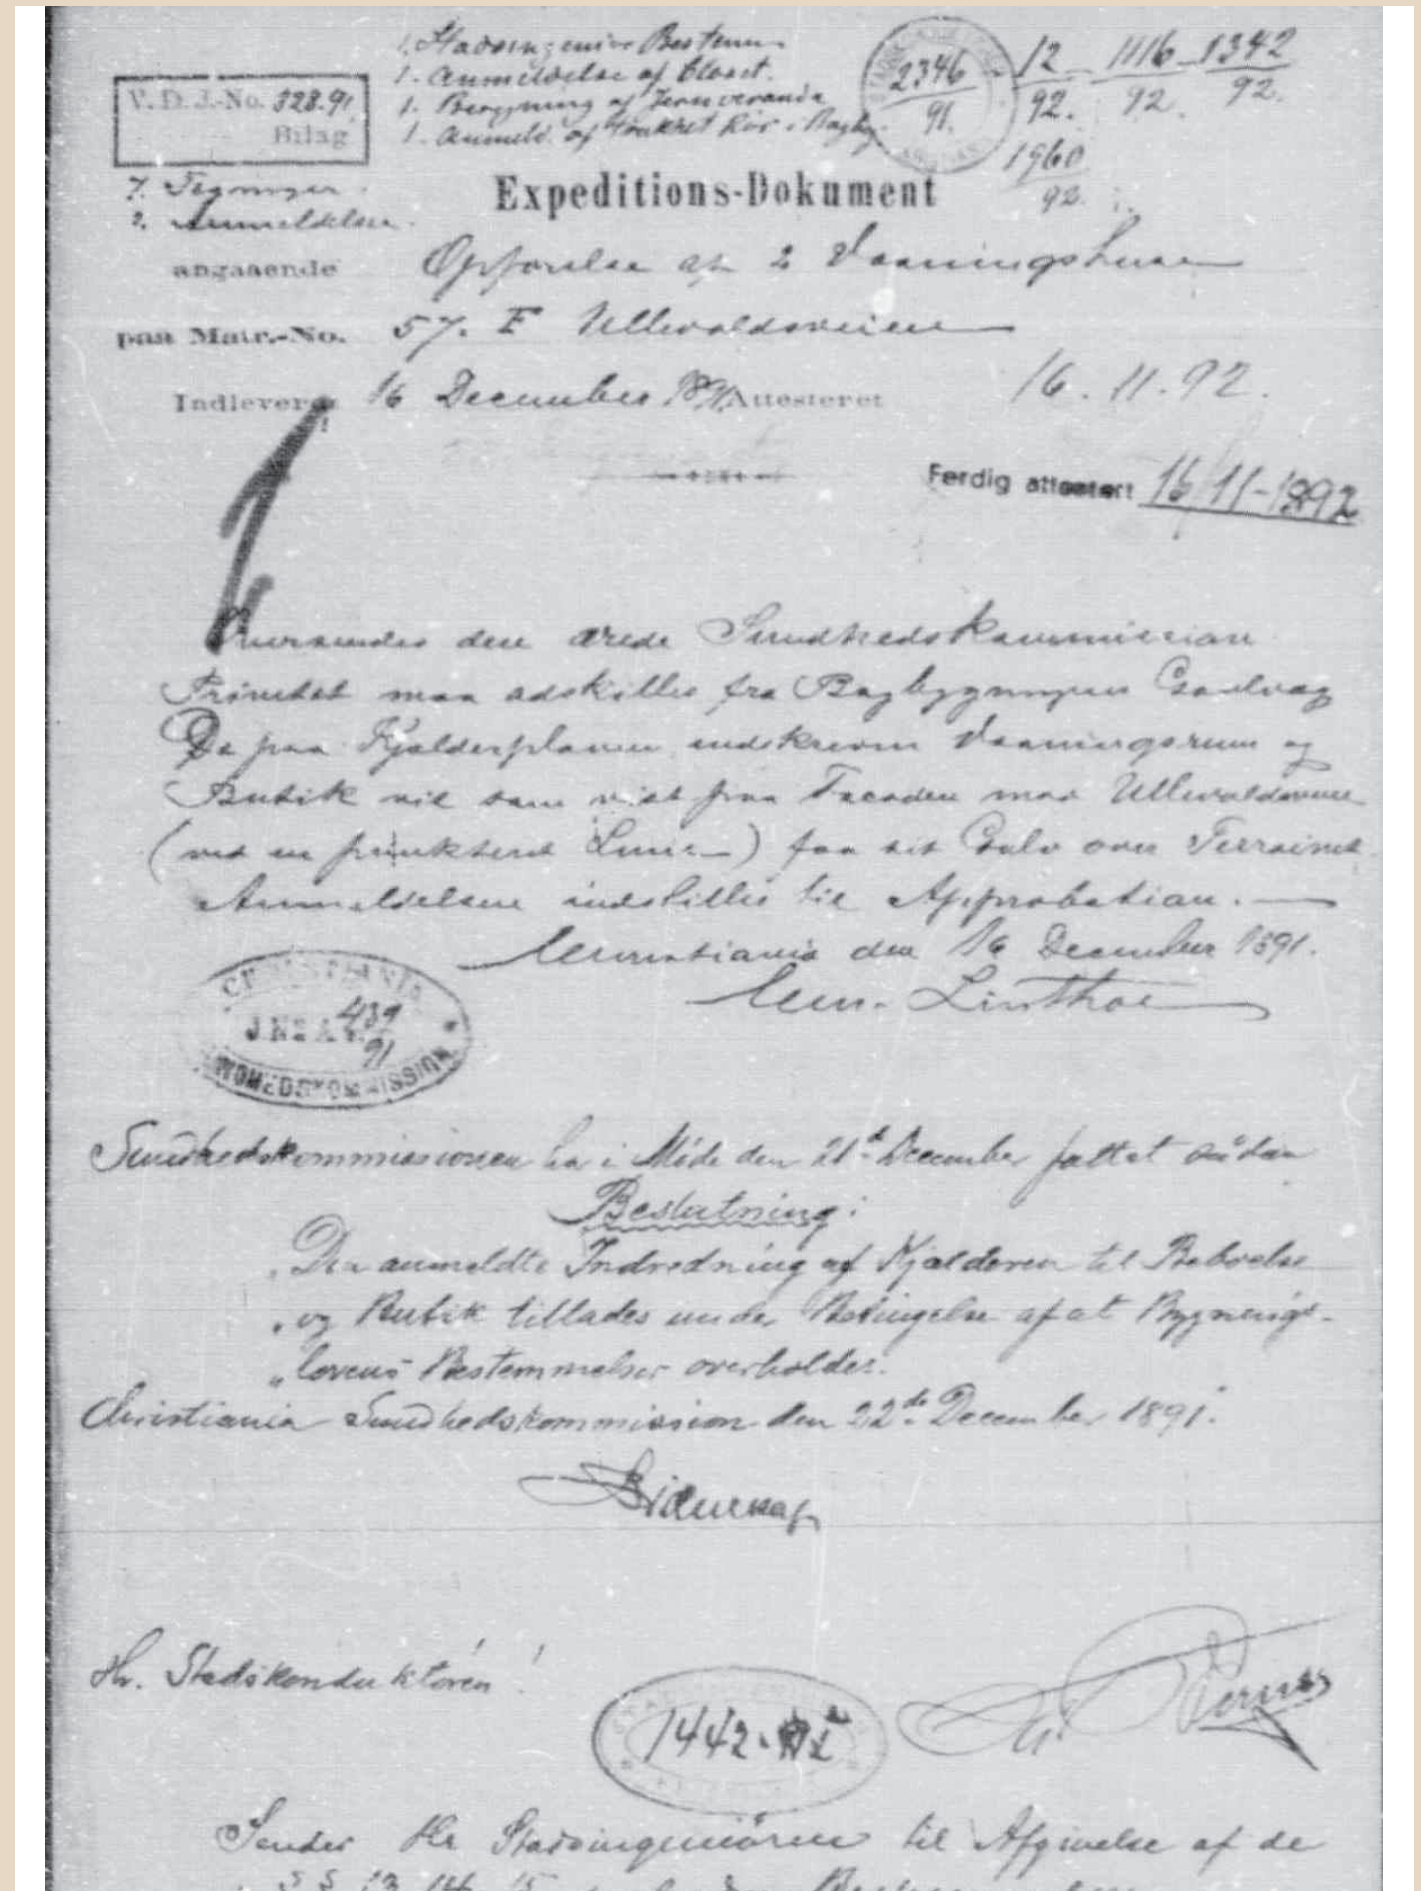 1. Stadsingeniør Bestem.
1. Anmeldelse af Closet.
1. Beregning af Jernveranda
1. Anmeld. af trukket Rør i Bagby.
2346 / 91.
12 / 92.
1116 / 92.
1342 / 92.
1960 / 92.
V. D. J.-No. 328.91
Bilag
7. Tegninger.
2. Anmeldelser.
Expeditions-Dokument
angaaende Opførelse af 2 Vaaningshuse
paa Matr.-No. 57. F Ullevoldsveien
Indleveret 16 December 1891. Attesteret 16.11.92.
Ferdig attestert 16/11-1892
1
Oversendes den ærede Sundhedskommission
Privetet maa adskilles fra Bagbygningen
De paa Kjælderplanen indskrevne Vaaningsrum og
Butik vil som vist paa Facaden mod Ullevoldsveien
(ved en punkteret Linie) faa sit Gulv over Terrainet.
Anmeldelsen indstilles til Approbation.
Christiania den 16 December 1891.
Chr.
CHRISTIANIA
J No A 439
91
SUNDHEDSKOMMISSION
Sundhedskommissionen har i Møde den 21de December fattet sådan
Beslutning:
"Den anmeldte Indredning af Kjælderen til Beboelse
"og Butik tillades under Betingelse af at Bygnings-
"lovens Bestemmelser overholdes.
Christiania Sundhedskommission den 22de December 1891.
Bidenkap
Hr. Stadskonduktøren!
1442.
Sendes Hr Stadsingeniøren til Afgivelse af de
§§ 13, 14, 15